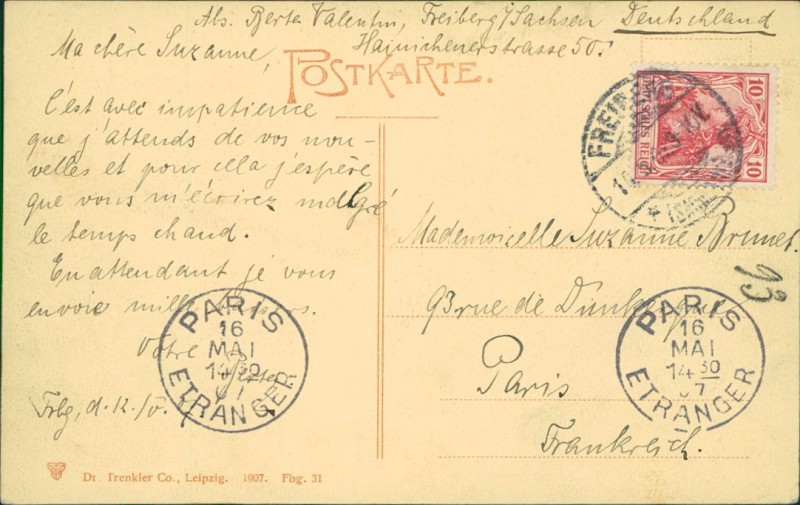 Abs. Berta Valentin, Freiberg i/Sachsen Deutschland
Hainichenerstrasse 50.
POSTKARTE.
Ma chère Suzanne,
C'est avec impatience
que j'attends de vos nou-
velles et pour cela j'espère
que vous m'écrirez malgré
le temps chaud.
En attendant je vous
envoie mille
Votre
Berta
Frbg, d. 12./5.
Mademoiselle Suzanne Brunet.
93 rue de Dunkerque
Paris
Frankreich.
93
10 DEUTSCHES REICH 10
FREIBERG
PARIS
16
MAI
14 30
07
ETRANGER
PARIS
16
MAI
14 30
07
ETRANGER
Dr. Trenkler Co., Leipzig. 1907. Fbg. 31